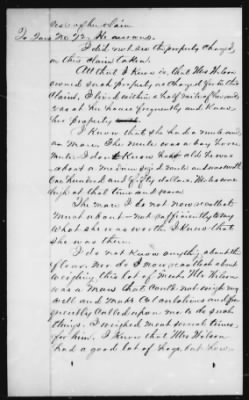 of her claim
To Int. No 72, He answers.
I did not see the property charged,
in this claim taken.
All that I know is, that Mrs Wilson
owned such property as charged for in this
claim, I lived within a half mile of her and
was at her house frequently and knew
her property
I know that she had a mule and
a mare. The mule was a bay horse
mule. I don't know how old he was
about a medium sized mule and was worth
one hundred and fifty dollars. Mules were
high at that time and scarce.
The mare I do not now recollect
much about - not sufficiently to say
what she was worth. I know that
she was there.
I do not know anything about the
flour, nor do I now recollect about
weighing this lot of meat. Mr Wilson
was a man that could not weigh very
well and make calculations and fre-
quently called upon me to do such
things. I weighed meat several times
for him. I know that Mrs Wilson
had a good lot of hogs, but how